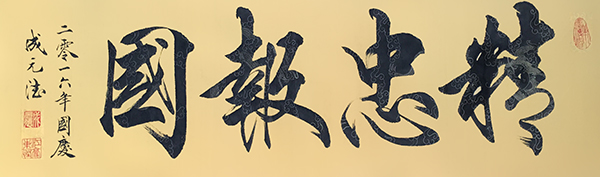 精忠報國
二零一六年國慶
成元法